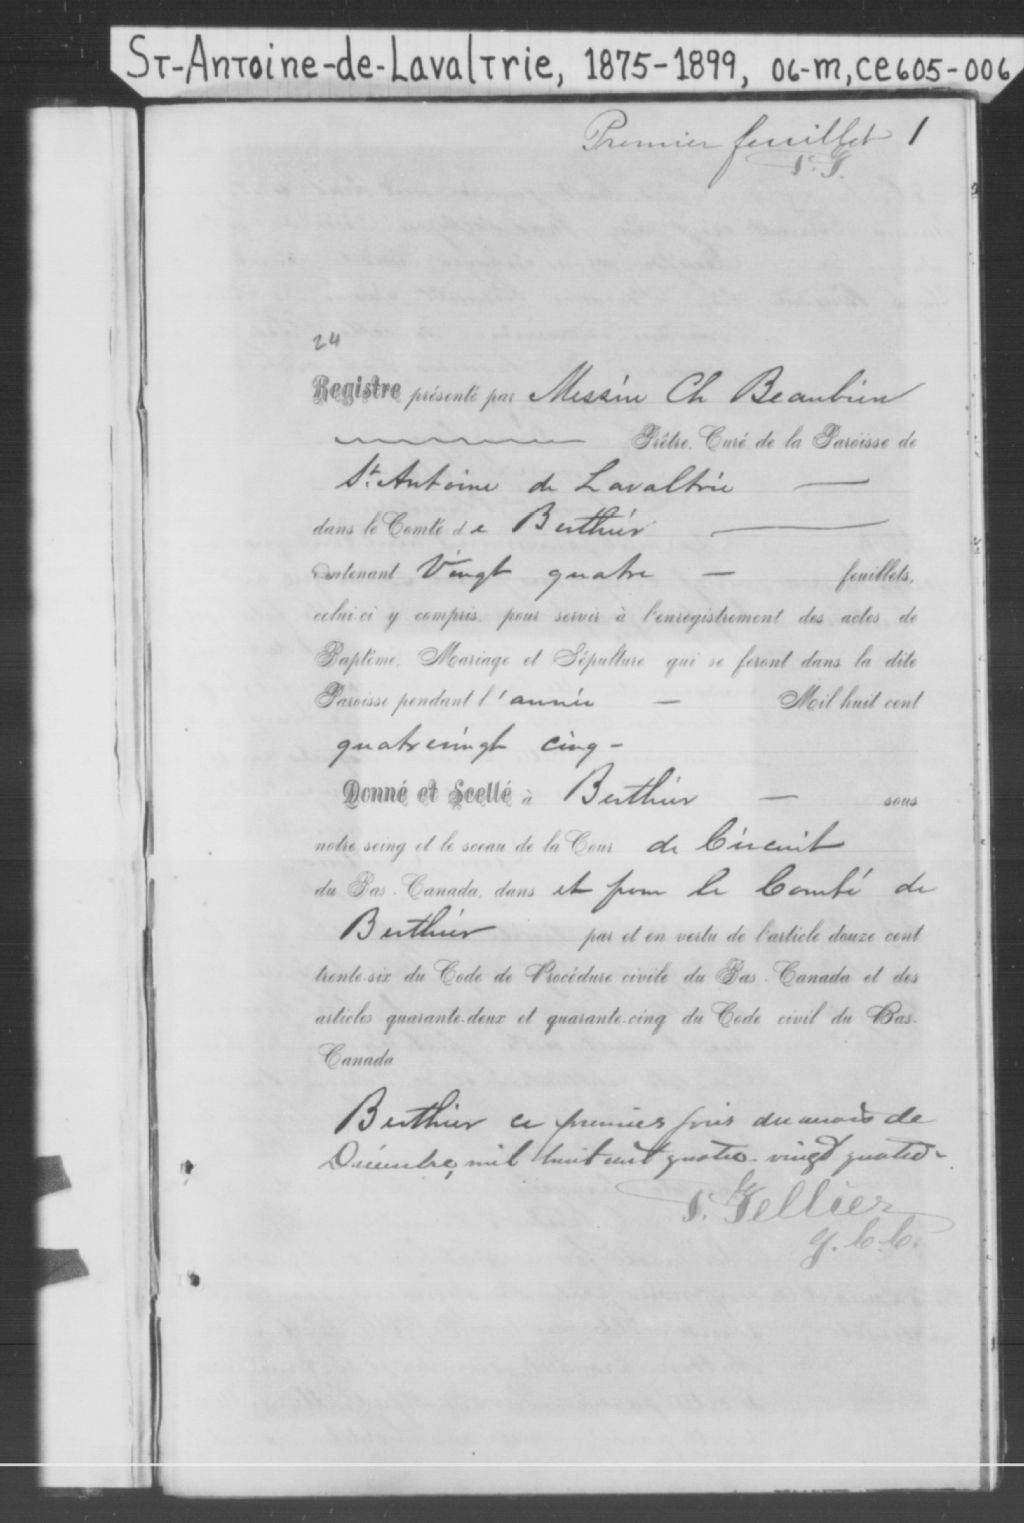 St-Antoine-de-Lavaltrie, 1875-1899, 06-M, CE605-006
Premier feuillet 1
24
Registre présenté par Messire Ch Beaubien
Prêtre, Curé de la Paroisse de
St. Antoine de Lavaltrie —
dans le Comté de Berthier —
contenant Vingt quatre — feuillets,
celui-ci y compris, pour servir à l'enregistrement des actes de
Baptême, Mariage et Sépulture qui se feront dans la dite
Paroisse pendant l'année — Mil huit cent
quatrevingt cinq -
Donné et Scellé à Berthier — sous
notre seing et le sceau de la Cour de Circuit
du Bas-Canada, dans et pour le Comté de
Berthier par et en vertu de l'article douze cent
trente-six du Code de Procédure civile du Bas-Canada et des
articles quarante-deux et quarante-cinq du Code civil du Bas-
Canada
Berthier ce premier jour du mois de
Décembre, mil huit cent quatre-vingt quatre-
Tellier